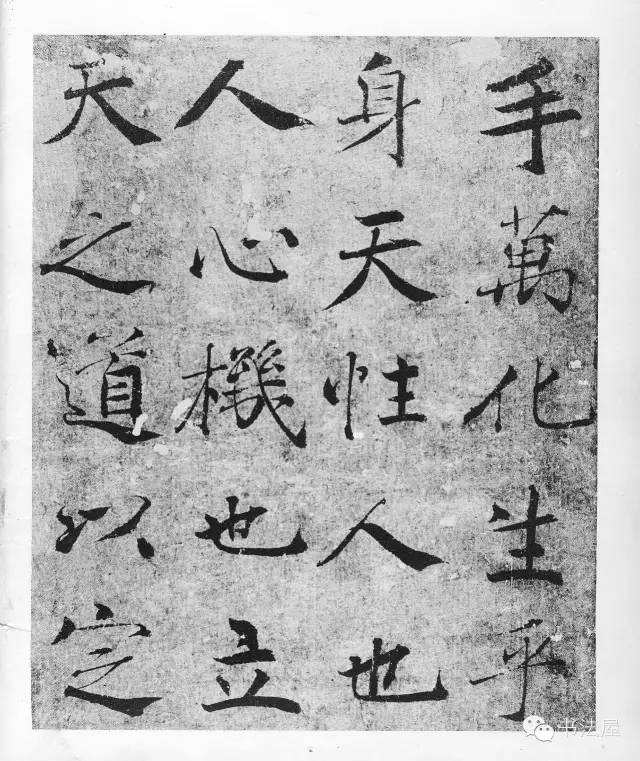 手萬化生乎
身天性人也
人心機也立
天之道以定
书法屋